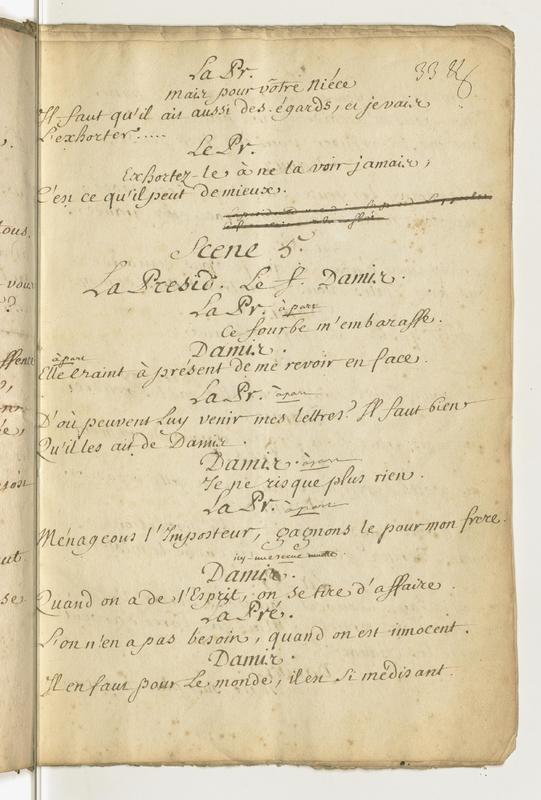 33
La Pr.
mais pour vôtre niéce
Il faut qu'il ait aussi des égards, et je vais
L'exhorter.....
Le Pr.
Exhortez-le à ne la voir jamais,
C'en ce qu'il peut de mieux.
Scene 5.
La Presid. Le f. Damis.
La Pr. à part
Ce fourbe m'embarasse.
Damis.
à part
Elle craint à présent de me revoir en face.
La Pr. à part
D'où peuvent Luy venir mes lettres? Il faut bien
Qu'il les ait de Damis.
Damis. à part
Je ne risque plus rien.
La Pr. à part
Ménageons l'Imposteur, gagnons le pour mon frere.
icy une scene muette.
Damis.
Quand on a de l'Esprit, on se tire d'affaire.
La Pré.
L'on n'en a pas besoin, quand on est innocent.
Damis.
Il en faut pour Le monde, il en si médisant.